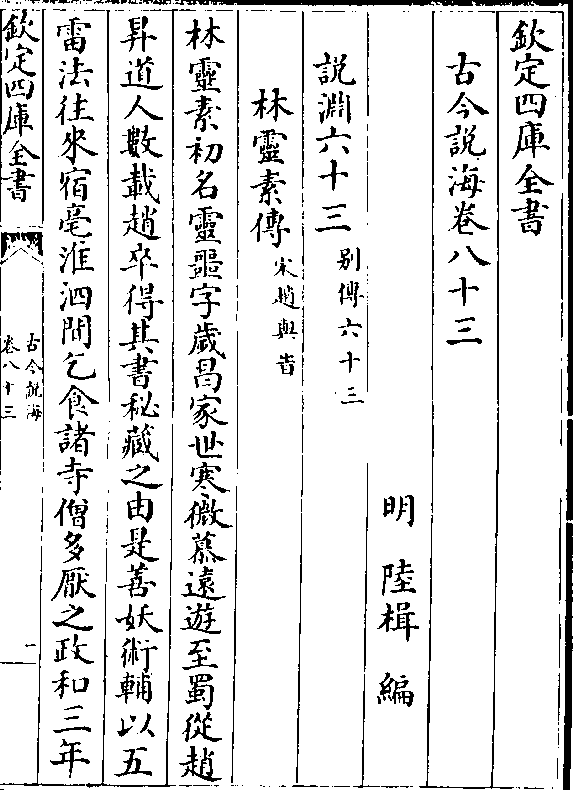 欽定四庫全書
古今説海卷八十三
明 陸楫 編
説淵六十三 别傳六十三
林靈素傳 宋趙與旹
林靈素初名靈噩字歲昌家世寒微慕遠遊至蜀從趙
昇道人數載趙卒得其書秘藏之由是善妖術輔以五
雷法往來宿亳淮泗間乞食諸寺僧多厭之政和三年
欽定四庫全書
古今説海
卷八十三
一